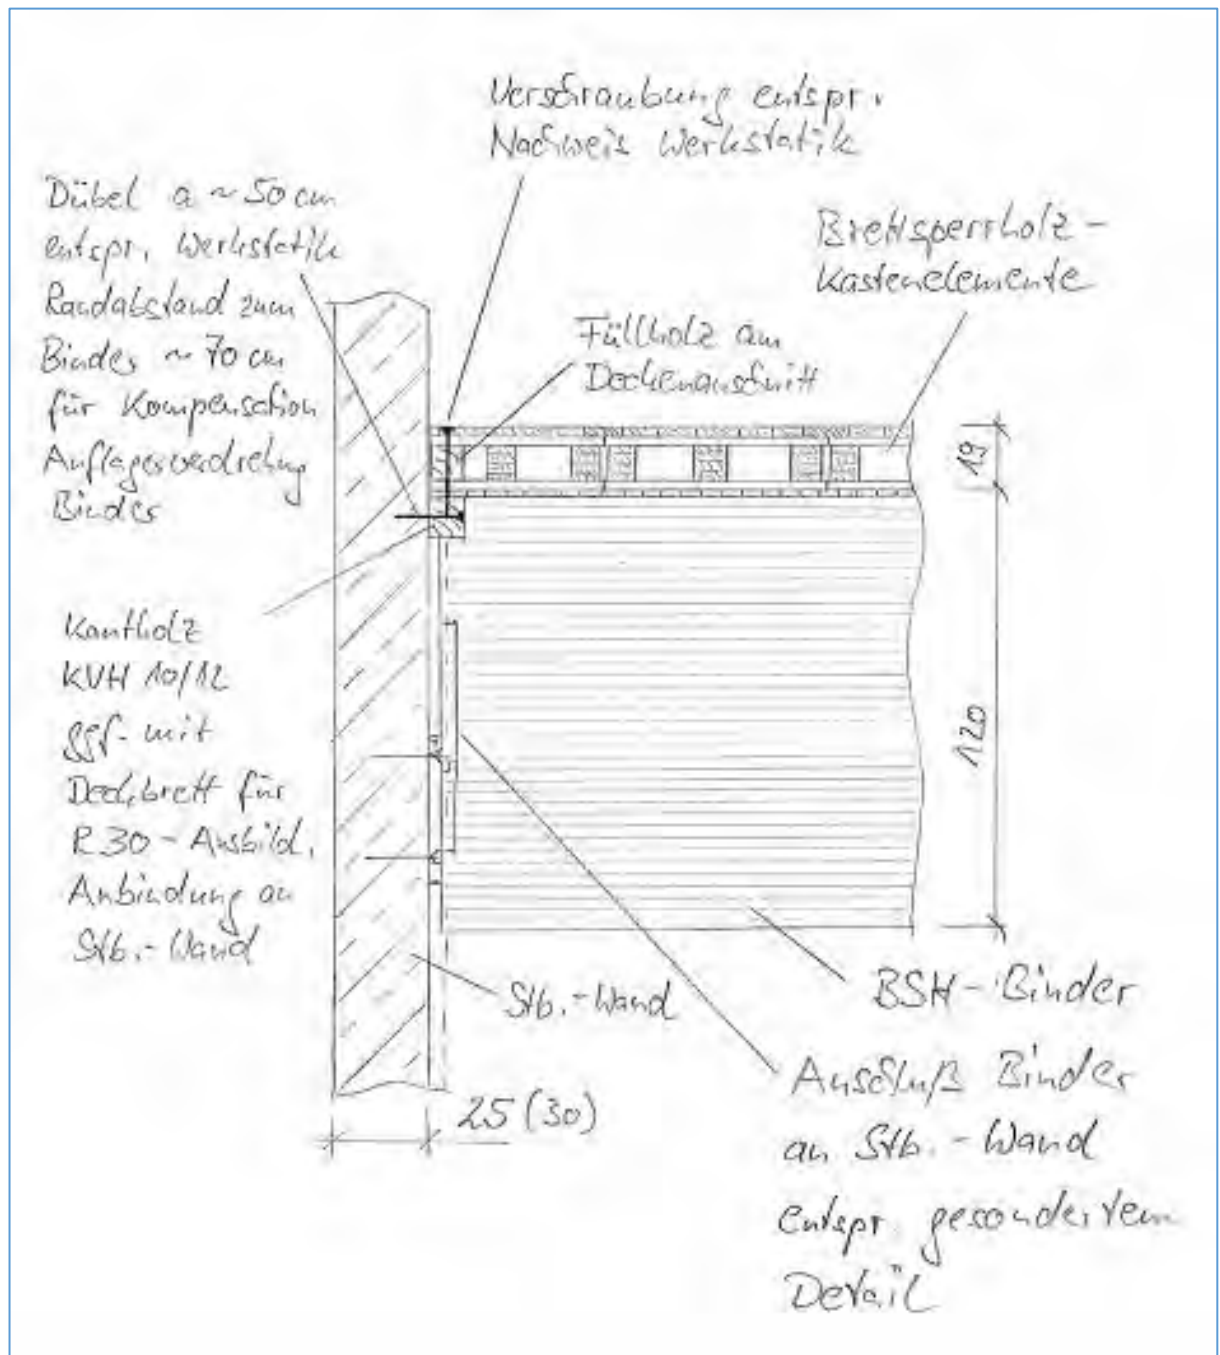 Verschraubung entspr.
Nachweis Werkstatik
Dübel a ~ 50 cm
entspr. Werkstatik
Randabstand zum
Binder ~ 70 cm
für Kompensation
Auflagerverdrehung
Binder
Brettsperrholz-
Kastenelemente
Füllholz am
Deckenanschnitt
19
Kantholz
KVH 10/12
ggf. mit
Deckbrett für
R30-Ausbild.
Anbindung an
Stb.-Wand
120
Stb.-Wand
BSH-Binder
25 (30)
Anschluß Binder
an Stb.-Wand
entspr. gesondertem
Detail